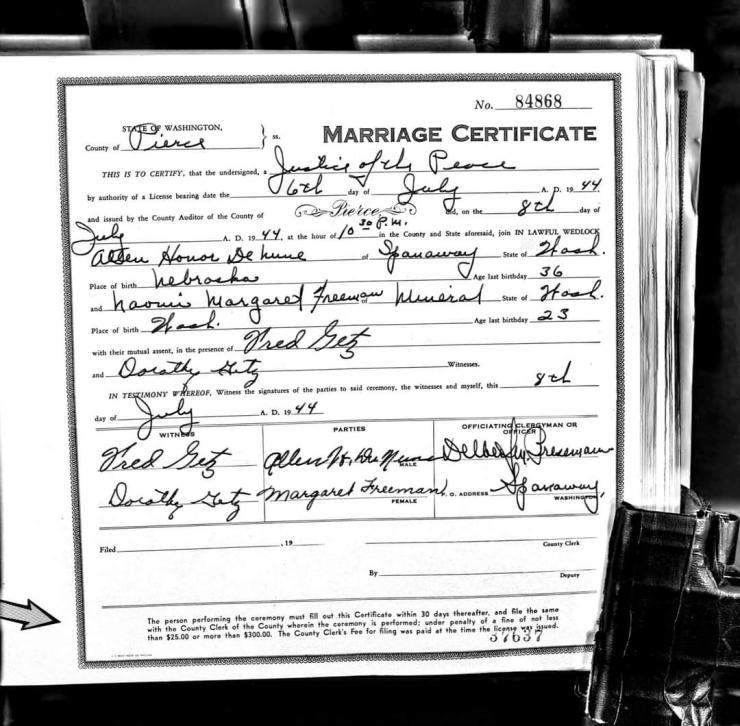 No. 84868
STATE OF WASHINGTON,
County of Pierce } ss.
MARRIAGE CERTIFICATE
THIS IS TO CERTIFY, that the undersigned, a Justice of the Peace
by authority of a License bearing date the 6th day of July A. D. 1944
and issued by the County Auditor of the County of Pierce and, on the 8th day of
July A. D. 1944, at the hour of 10 30 P.M. in the County and State aforesaid, join IN LAWFUL WEDLOCK
Allen Honor of Spanaway State of Wash.
Place of birth Nebraska Age last birthday 36
and Naomi Margaret Freeman of Mineral State of Wash.
Place of birth Wash. Age last birthday 23
with their mutual assent, in the presence of Fred Getz
and Dorothy Getz Witnesses.
IN TESTIMONY WHEREOF, Witness the signatures of the parties to said ceremony, the witnesses and myself, this 8th
day of July A. D. 1944
WITNESS PARTIES OFFICIATING CLERGYMAN OR OFFICER
Fred Getz Allen H. MALE
Dorothy Getz Margaret Freeman FEMALE P. O. ADDRESS Spanaway, WASHINGTON
Filed , 19 County Clerk
By Deputy
The person performing the ceremony must fill out this Certificate within 30 days thereafter, and file the same
with the County Clerk of the County wherein the ceremony is performed; under penalty of a fine of not less
than $25.00 or more than $300.00. The County Clerk's Fee for filing was paid at the time the license was issued.
37637